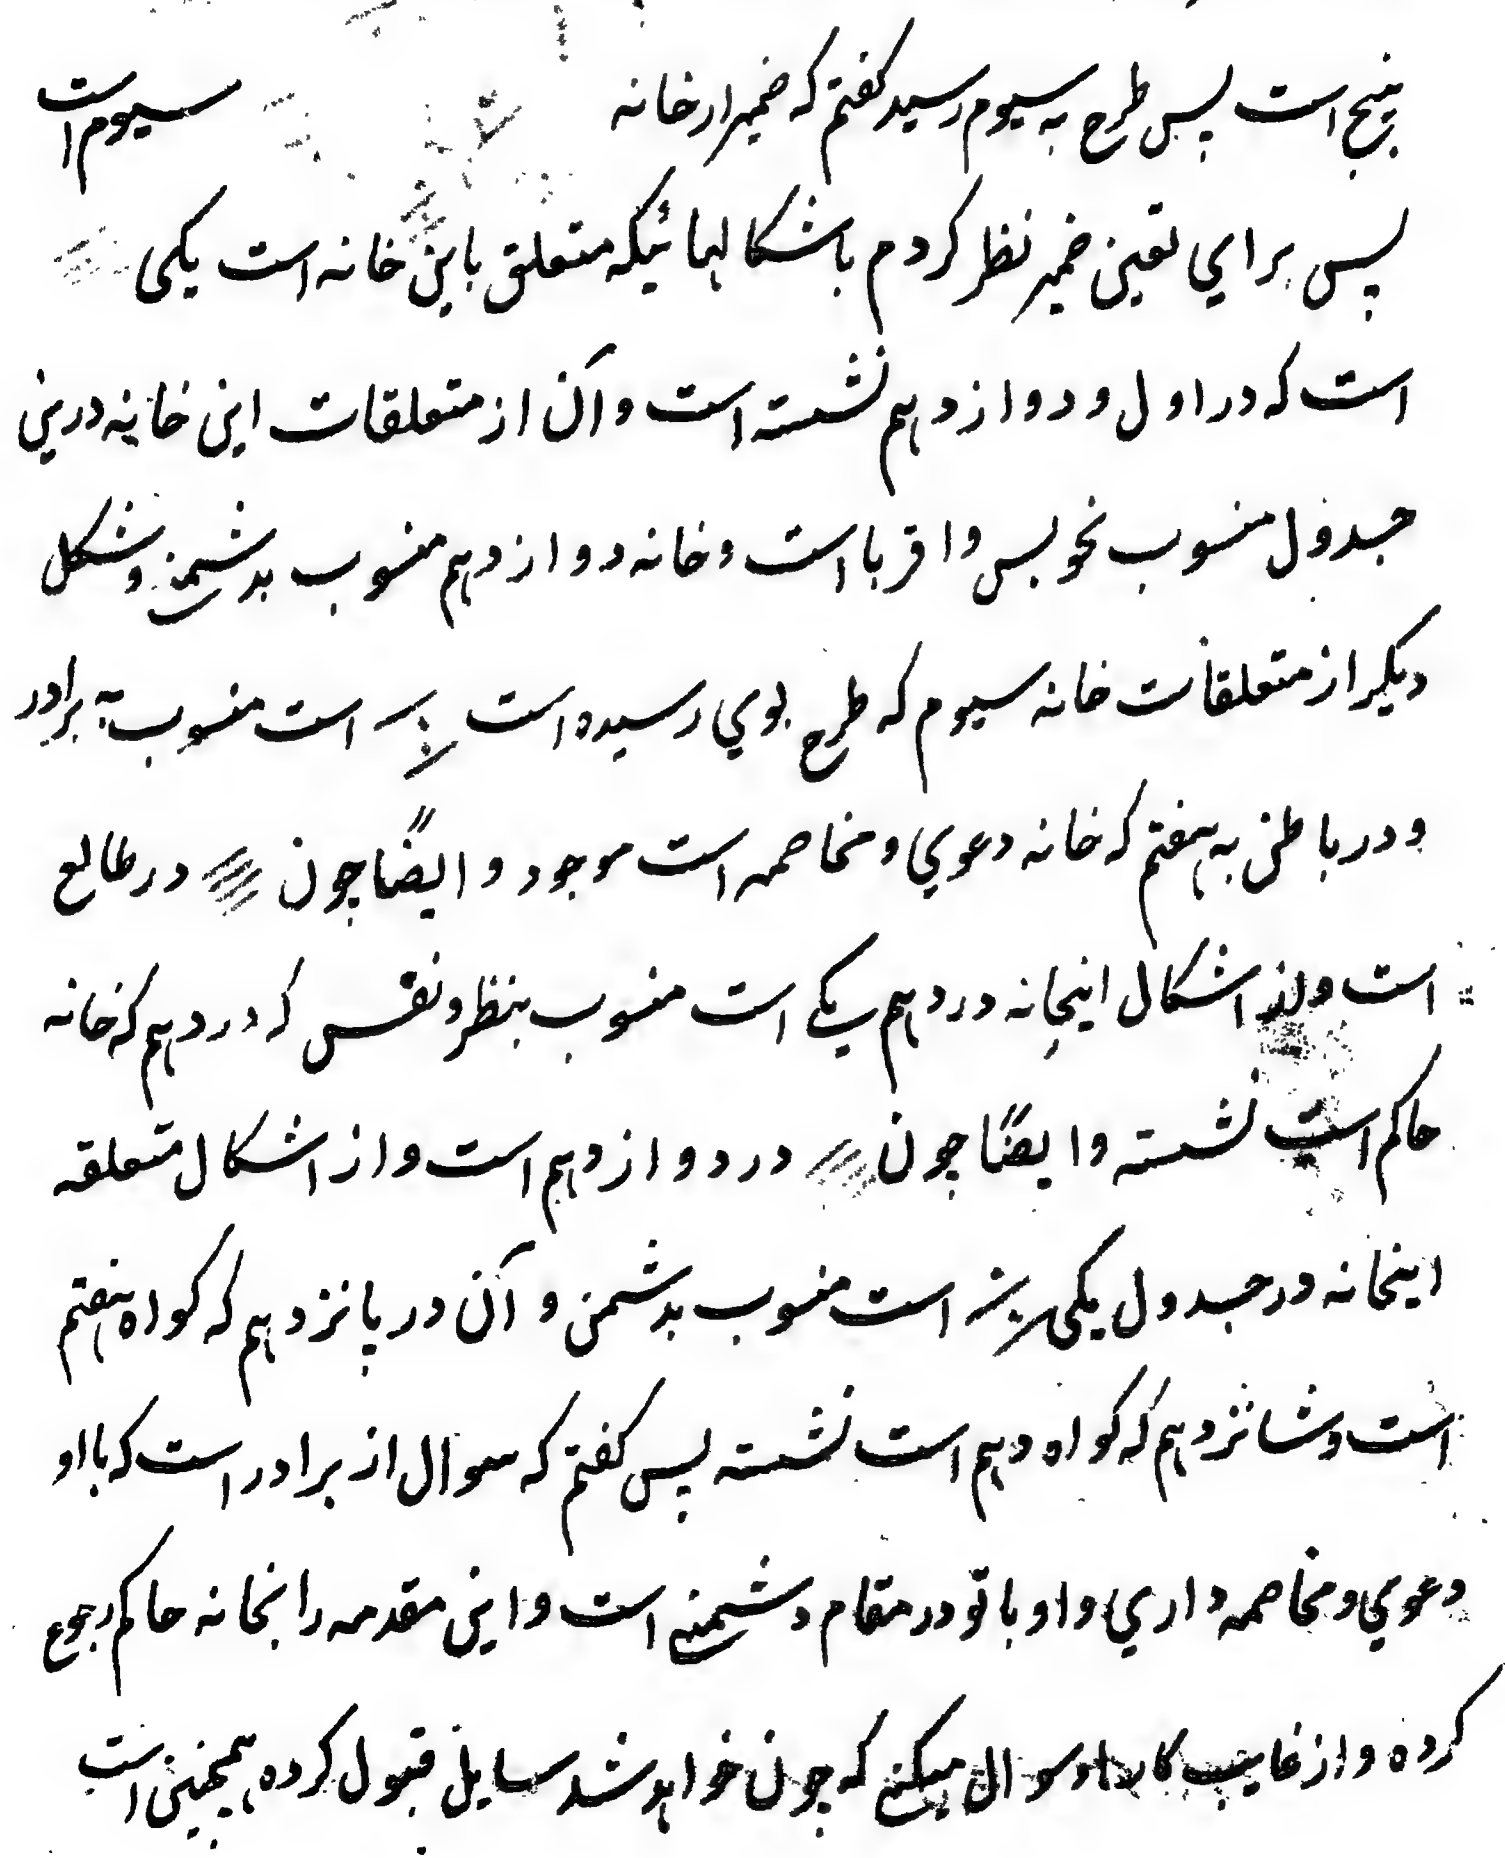 پنج است پس طرح به سیوم رسید کفتم که ضمیر از خانه سیوم است
پس برای تعین ضمیر نظر کردم باشکالهائیکه متعلق باین خانه است یکی
است که در اول و دوازدهم نشسته است و آن از متعلقات این خانه درین
جدول منسوب بخویس و اقربا است و خانه دوازدهم منسوب بدشمن و شکل
دیکر از متعلقات خانه سیوم که طرح بوی رسیده است است منسوب به برادر
و در باطن به هفتم که خانه دعوی و مخاصمه است موجود و ایضًا چون در طالع
است و از اشکال اینخانه در دهم یکے است منسوب بنظر و نفس که در دهم که خانه
حاکم است نشسته و ایضًا چون در دوازدهم است و از اشکال متعلقه
اینخانه در جدول یکی است منسوب بدشمن و آن در پانزدهم که کواه هفتم
است و شانزدهم که کواه دهم است نشسته پس کفتم که سوال از برادر است که با او
دعوی و مخاصمه داری و او با تو در مقام دشمنے است و این مقدمه را بخانه حاکم رجوع
کرده و از غایب کار او سوال میکنے که چون خواهد شد سایل قبول کرده همچنین است